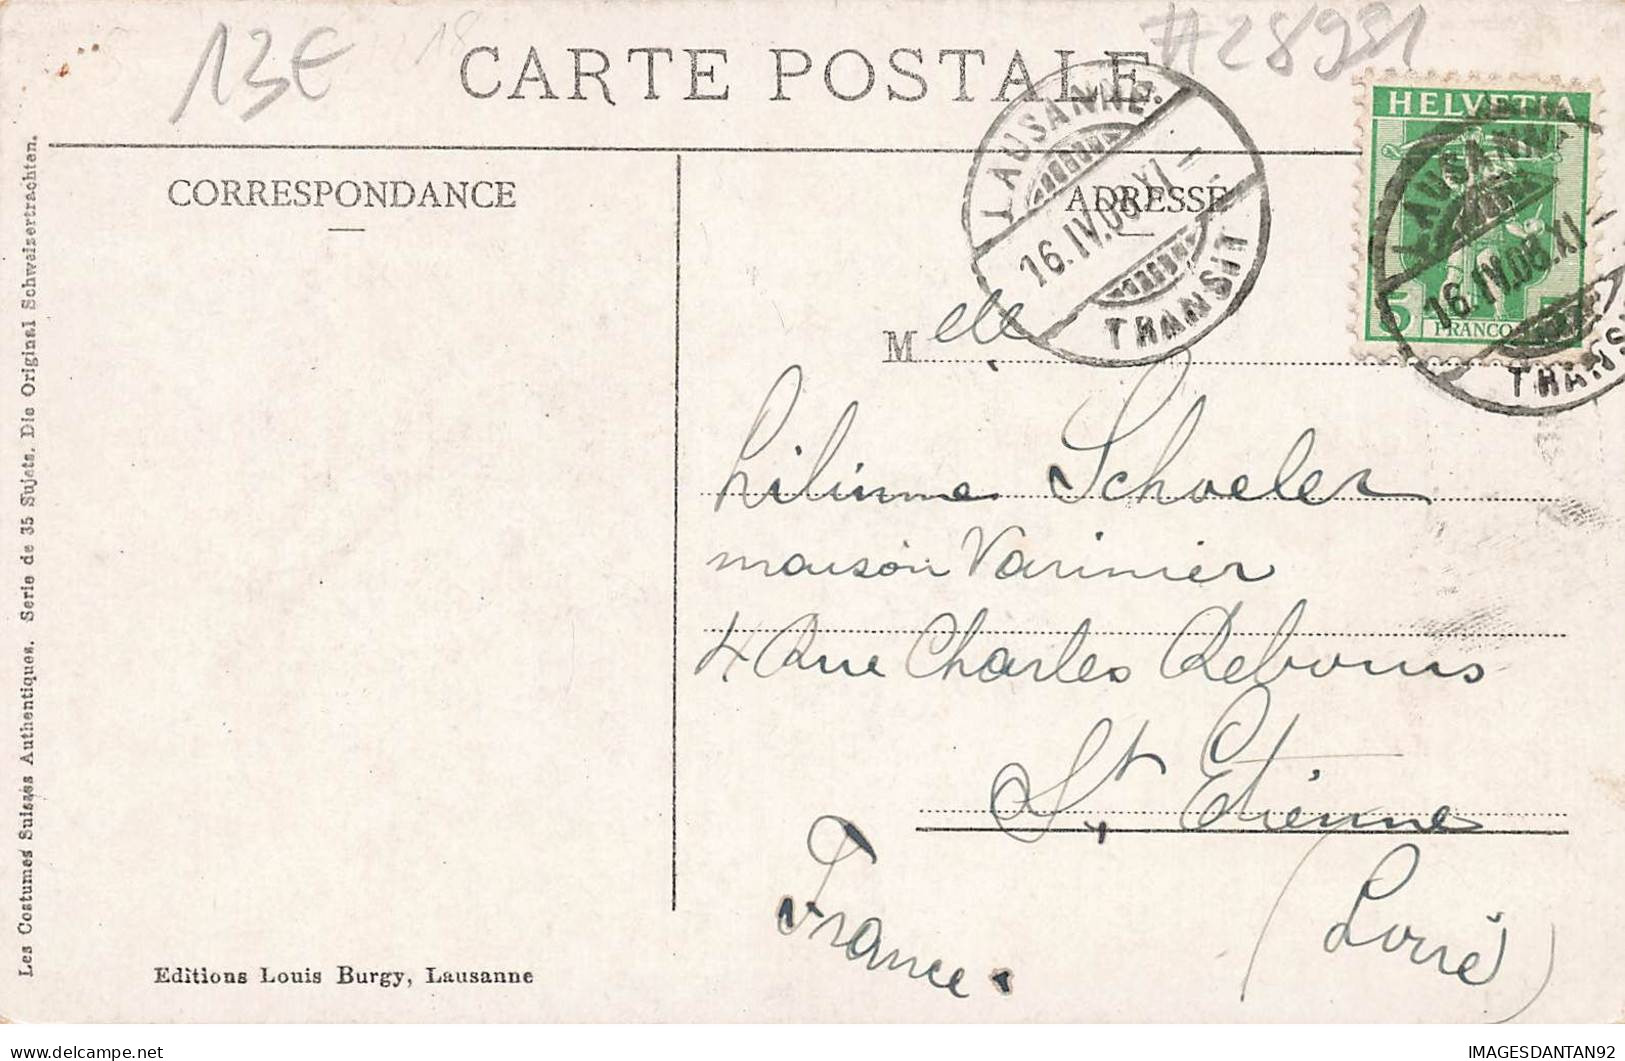 13€
18
#28981
CARTE POSTALE
LAUSANNE.
16.IV.08.XI
TRANSIT
HELVETIA
5
FRANCO
LAUSANNE
16.IV.08.XI
TRANS
CORRESPONDANCE
ADRESSE
Melle
Schoeler
maison Varinier
4 Rue Charles Rebours
St Etienne
(Loire)
France.
Les Costumes Suisses Authentiques. Serie de 35 Sujets. Die Original Schweizertrachten.
Editions Louis Burgy, Lausanne
IMAGESDANTAN92
delcampe.net